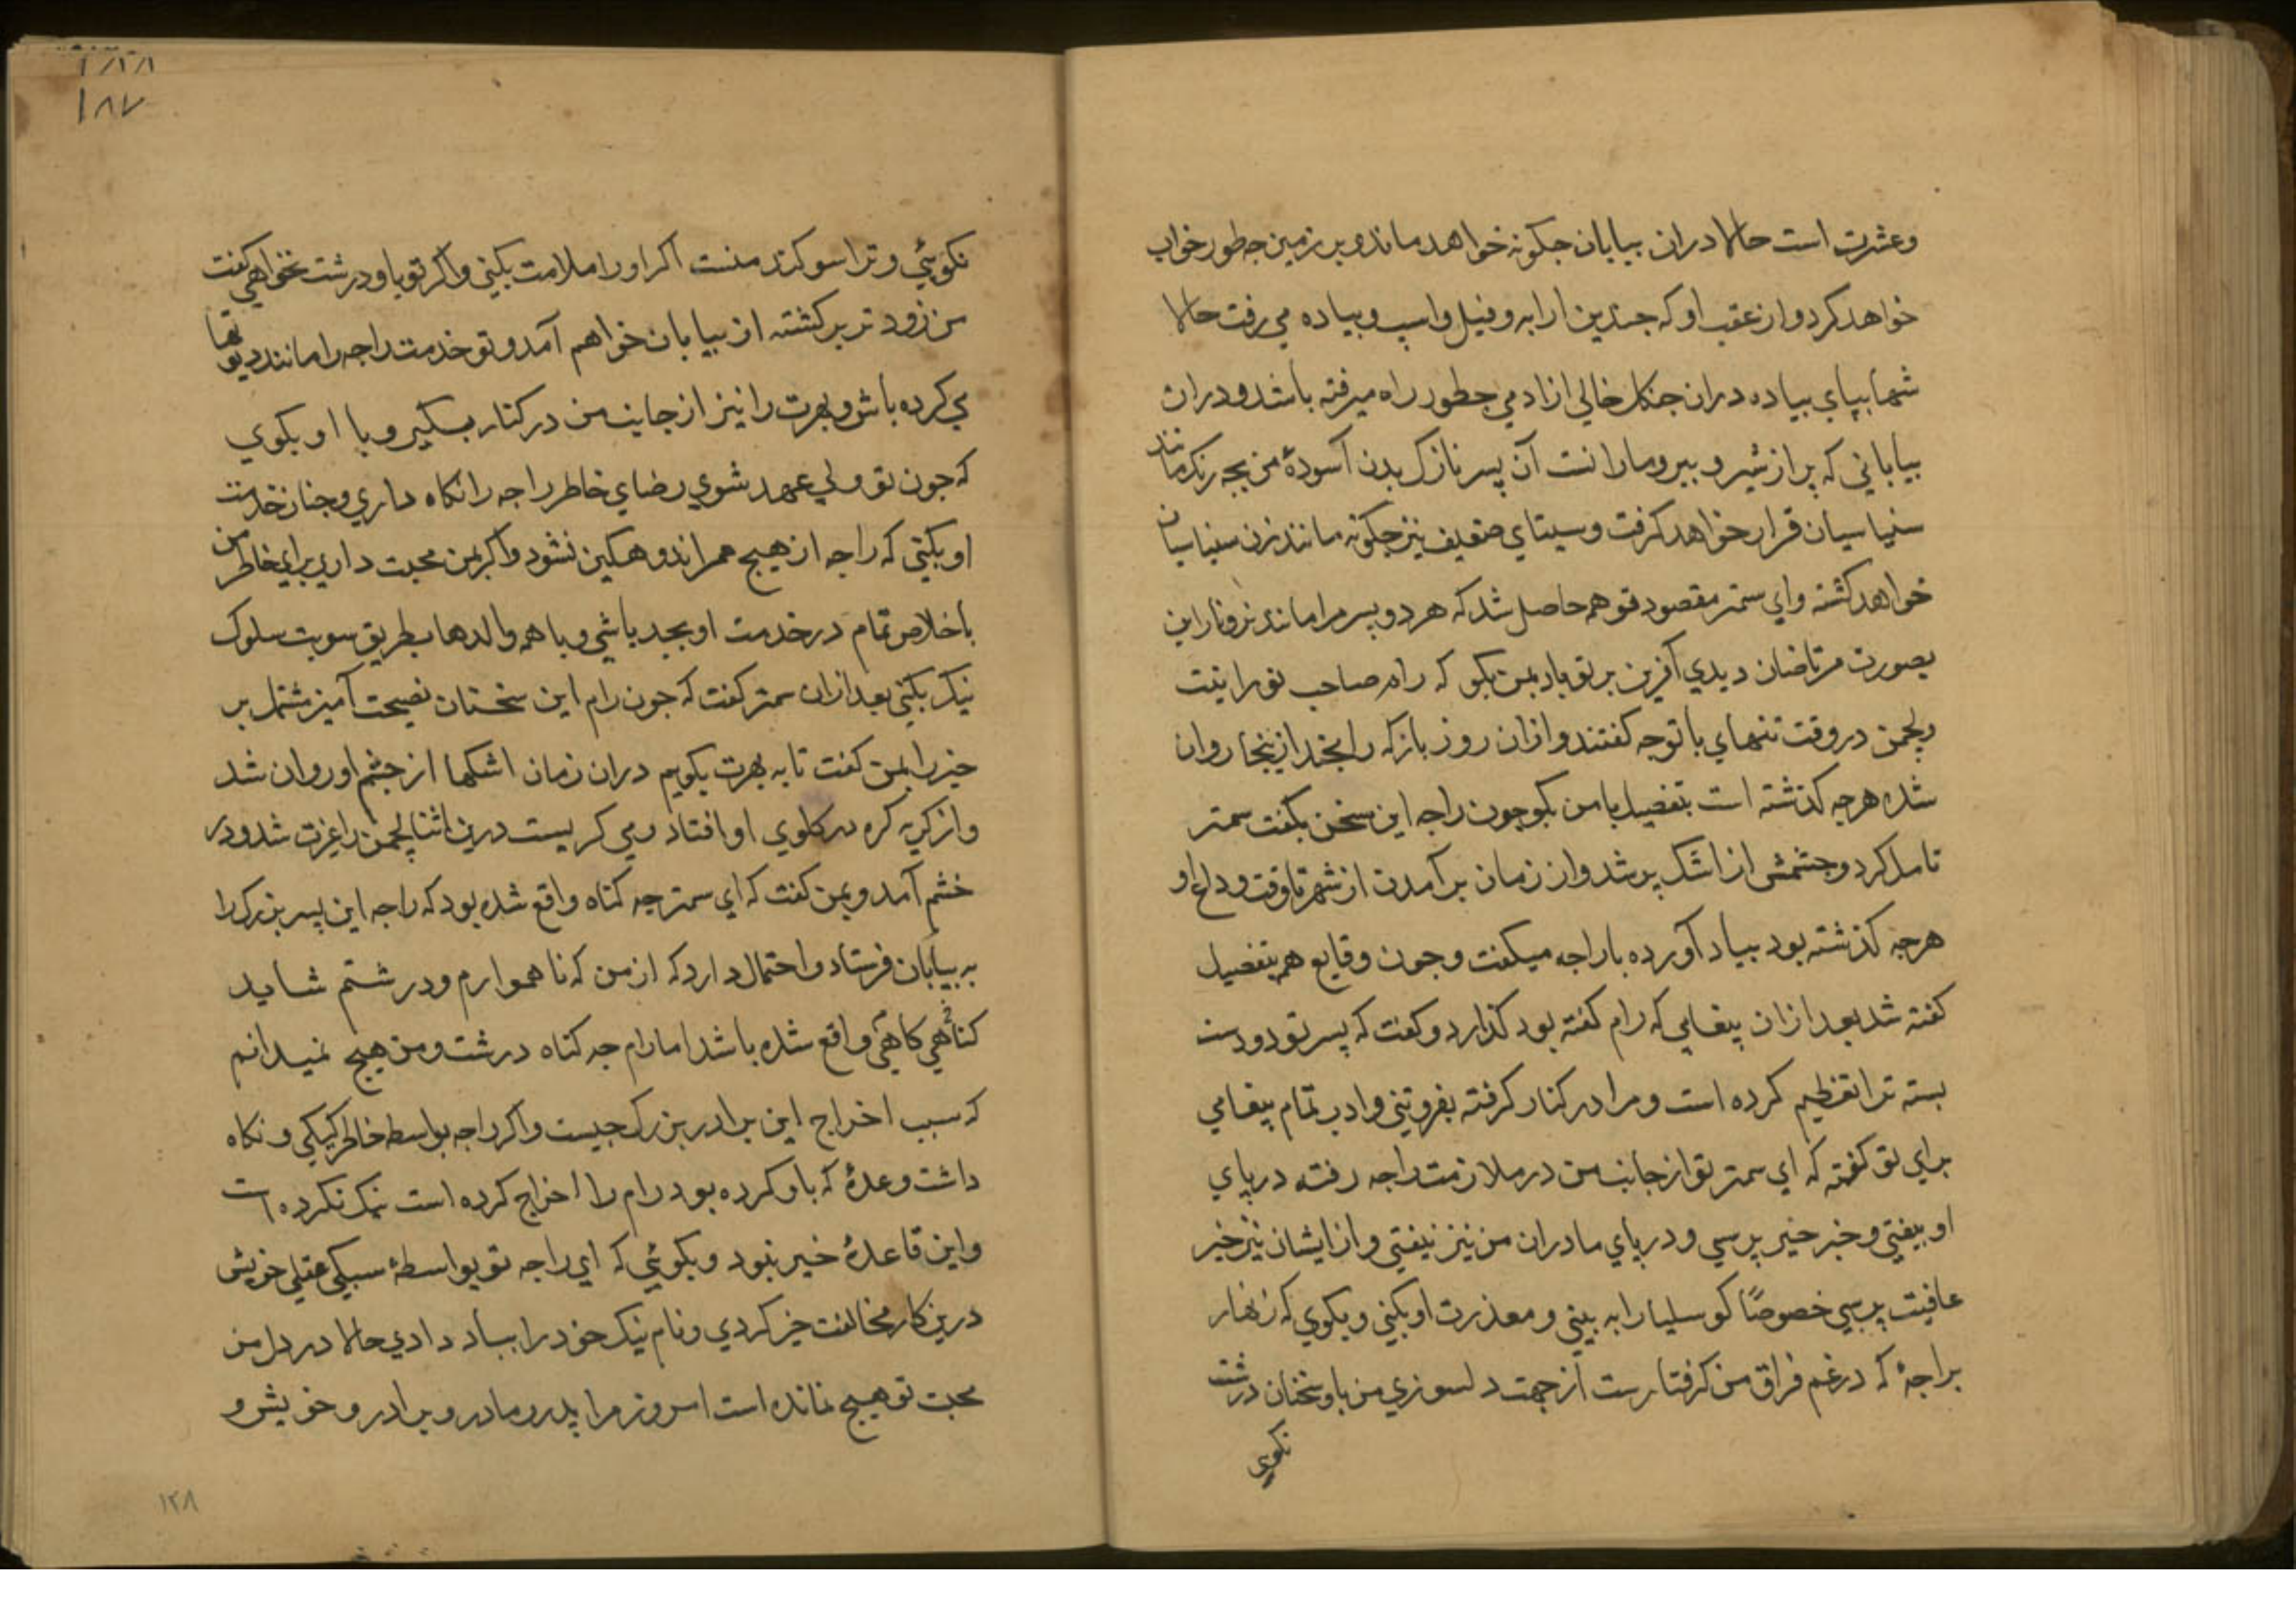 وعشرت است حالا دران بیابان جکونه خواهد ماند و بر زمین جه طور خواب
خواهد کرد و از عقب او که جندین ارابه و فیل و اسپ و پیاده می رفت حالا
تنها بپای پیاده دران جنکل خالی از ادمی جطور راه میرفته باشد و دران
بیابانی که پر از شیر و ببر و مارانست آن پسر نازک بدن آسودهٔ من بجه رنک مانند
سنیاسیان قرار خواهد کرفت و سیتای ضعیف نیز جکونه مانند زن سنیاسیان
خواهد کشت و ای سمتر مقصود تو هم حاصل شد که هر دو پسر مرا مانند نر و ناراین
بصورت مرتاضان دیدی آفرین بر تو باد بمن بکو که رام صاحب تو را
ولجمن در وقت تنهای با تو جه کفتند و ازان روز باز که رامجند از ینجا روان
شده هرجه کذشته است بتفصیل با من بکو جون راجه این سخن بکفت سمتر
تامل کرد و جشمش از اشک پر شد و از زمان بر آمدن از شهر تا وقت وداع او
هرجه کذشته بود بیاد آورده با راجه میکفت و جون وقایع هم بتفصیل
کفته شد بعد ازان پیغامی که رام کفته بود کذارد و کفت که پسر تو دو دست
بسته ترا تعظیم کرده است و مرا در کنار کرفته بفروتنی و ادب تمام پیغامی
برای تو کفته که ای سمتر تو از جانب من در ملازمت راجه رفته در پای
او بیفتی و خبر خیر پرسی و در پای مادران من نیز بیفتی و از ایشان نیز خبر
عافیت پرسی خصوصًا کوسلیا را به بینی و معذرت او بکنی و بکوی که زنهار
براجهٔ که در غم فراق من کرفتارست از جهت دلسوزی من باو سخنان درشت
نکوی
۱۸۷
نکوئی و ترا سوکند منست اکر او را ملامت بکنی و اکر تو باو درشت نخواهی کفت
من زود تر بر کشته از بیابان خواهم آمد و تو خدمت راجه را مانند دیوتها
می کرده باش و بهرت را نیز از جانب من در کنار بکیر و با او بکوی
که جون تو ولی عهد شوی رضای خاطر راجه را نکاه داری و جنان خدمت
او بکنی که راجه از هیج ممر اندوهکین نشود و اکر بمن محبت داری برای خاطر من
باخلاص تمام در خدمت او بجد باشی و با همه والدها بطریق سویت سلوک
نیک بکنی بعد ازان سمتر کفت که جون رام این سخنان نصیحت آمیز مشتمل بر
خیر را بمن کفت تا به بهرت بکویم دران زمان اشکها از جشم او روان شد
و از کریه کره در کلوی او افتاد و می کریست درین اثنا لجمن را غیرت شد و در
خشم آمد و بمن کفت که ای سمتر جه کناه واقع شده بود که راجه این پسر بزرک را
به بیابان فرستاد و احتمال دارد که از من که نا هموارم و درشتم شاید
کناهی کاهی واقع شده باشد اما رام جه کناه درشت و من هیج نمیدانم
که سبب اخراج این برادر بزرک جیست و اکر راجه بواسطه خاطر کیکی و نکاه
داشت وعدهٔ که باو کرده بود رام را اخراج کرده است نیک نکرده است
و این قاعدهٔ خیر نبود و بکوئی که ای راجه تو بواسطهٔ سبکی عقلی خویش
درین کار مخالفت خیر کردی و نام نیک خود را بباد دادی حالا در دل من
محبت تو هیج نمانده است امروز مرا پدر و مادر و برادر و خویش و
۱۲۸